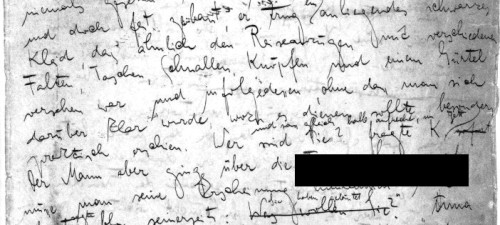 niemals gesehen
und doch fest gebaut, er trug ein anliegendes schwarzes
Kleid das ähnlich den Reiseanzügen mit verschiedenen
Falten, Taschen, Schnallen, Knöpfen und einem Gürtel
versehen war und infolgedessen ohne dass man sich
darüber klar wurde, wozu es dienen sollte besonders
praktisch erschien. Wer sind Sie? fragte K. und sass gleich halb aufrecht im
Der Mann aber ging über die
müsse man seine Erscheinung
seinerseits: Sie haben geläutet? Was wollen Sie?